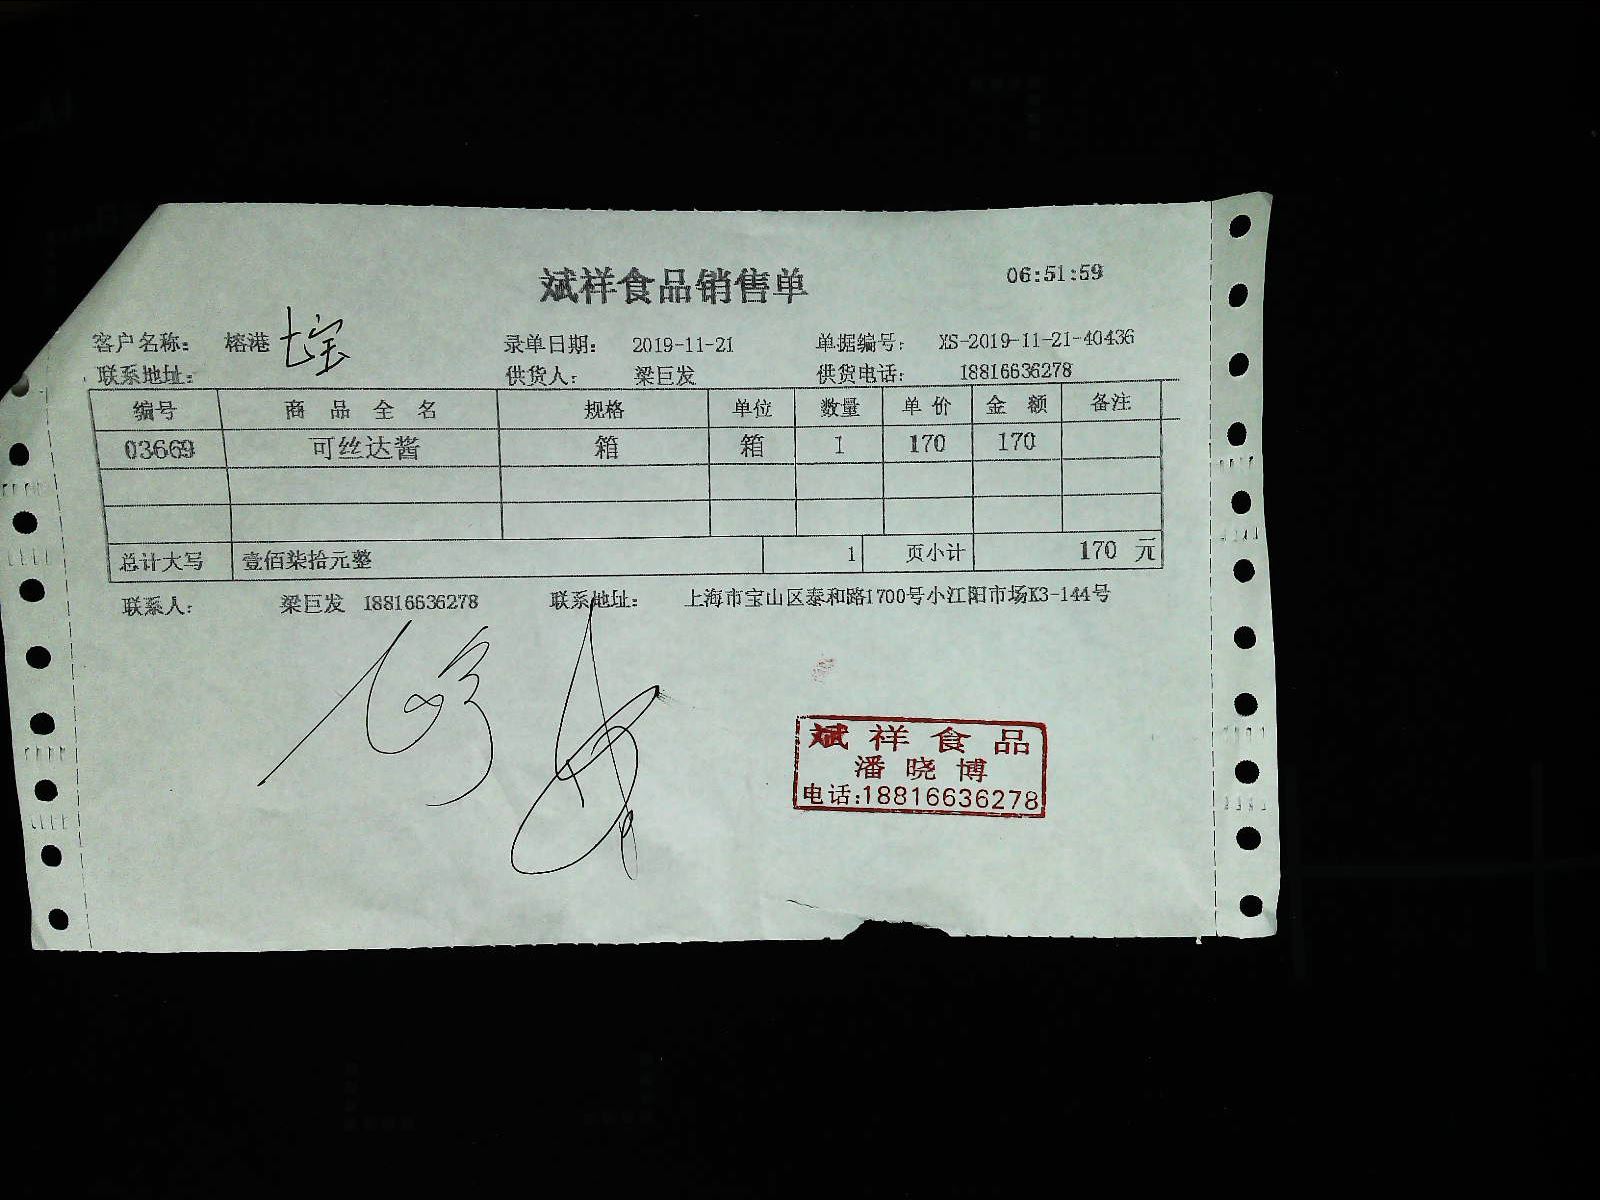 斌祥食品销售单 06:51:59
客户名称： 榕港 七宝 录单日期： 2019-11-21 单据编号： XS-2019-11-21-40436
联系地址： 供货人： 梁巨发 供货电话： 18816636278
编号 商品全名 规格 单位 数量 单价 金额 备注
03669 可丝达酱 箱 箱 1 170 170
总计大写 壹佰柒拾元整 1 页小计 170 元
联系人： 梁巨发 18816636278 联系地址： 上海市宝山区泰和路1700号小江阳市场K3-144号
斌祥食品
潘晓博
电话:18816636278